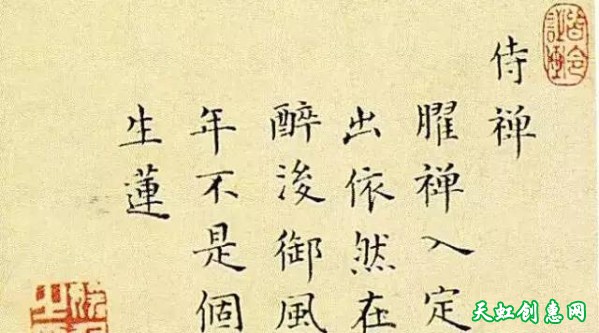 侍禅
臞禅入定
出依然在
醉浚御風
年不是個
生蓮
天虹创意网